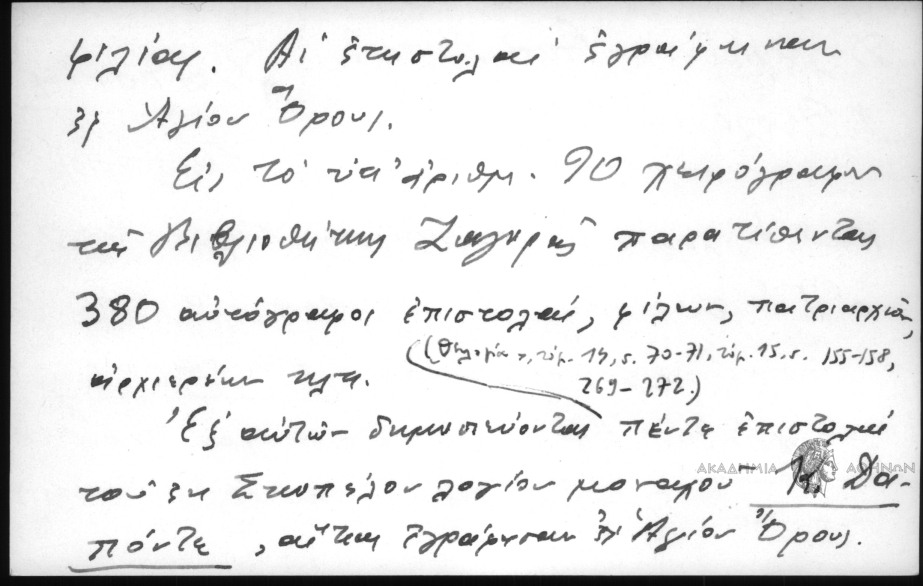 φιλίαν. Αἱ ἐπιστολαί ἐγράφησαν
ἐξ Ἁγίου Ὄρους.
Εἰς τό ὑπ' ἀριθμ. 90 χειρόγραφον
τῆς Βιβλιοθήκης Ζαγορᾶς παρατίθενται
380 αὐτόγραφοι ἐπιστολαί, φίλων, πατριαρχῶν,
ἀρχιερέων κλπ.
τόμ. 14, σ. 70-71, τόμ. 15, σ. 155-158,
269-272.)
Ἐξ αὐτῶν δημοσιεύονται πέντε ἐπιστολαί
τοῦ ἐκ Σκοπέλου λογίου μοναχοῦ Κ. Δα-
πόντε, αἵτινες ἐγράφησαν ἐξ Ἁγίου Ὄρους.
ΑΚΑΔΗΜΙΑ ΑΘΗΝΩΝ